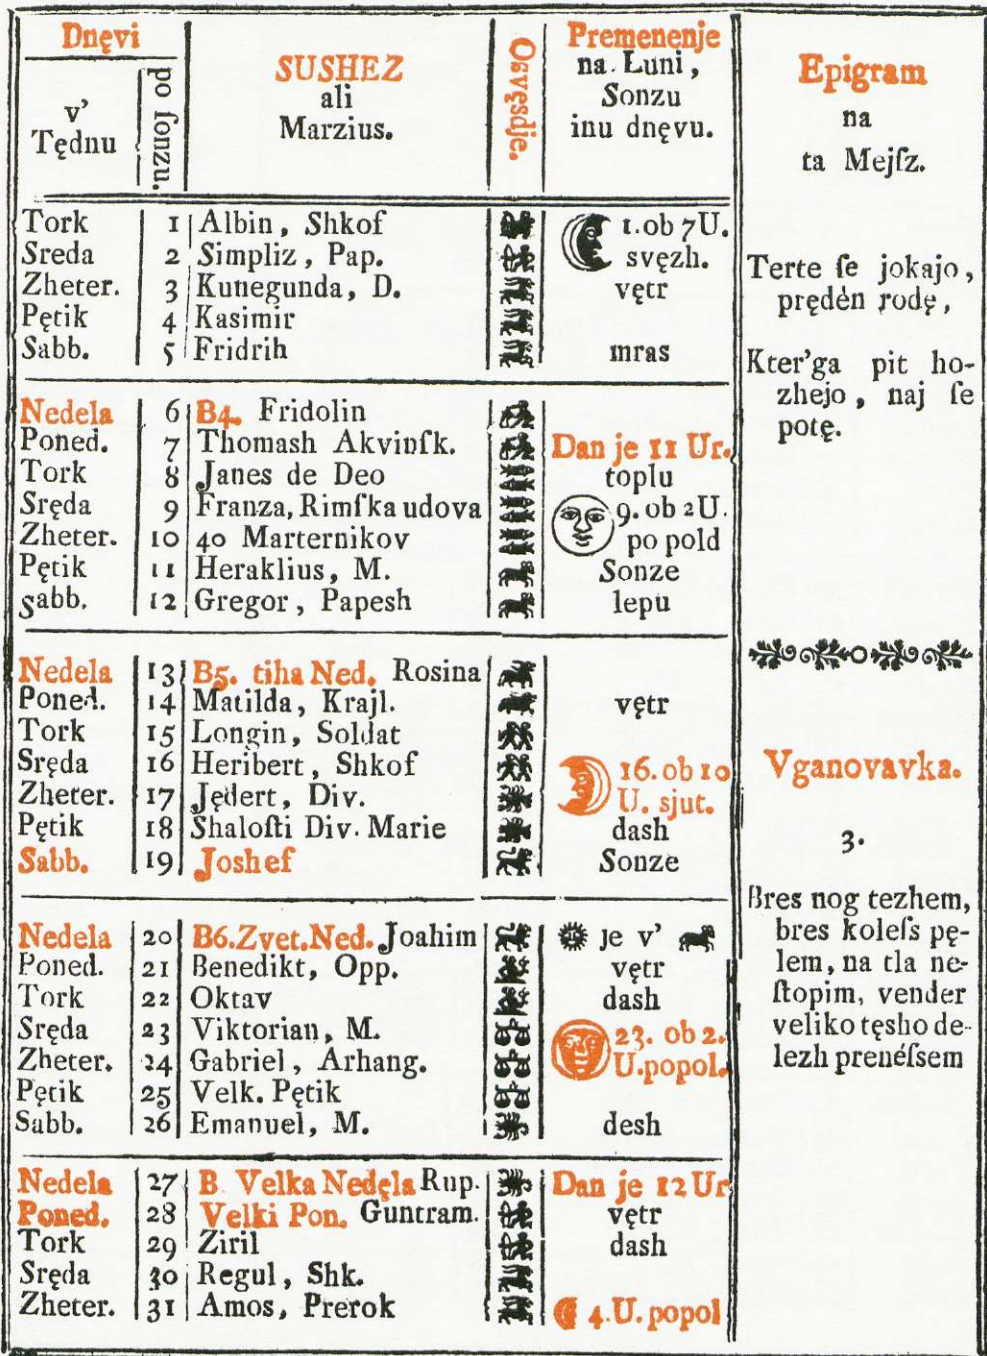 Dnęvi
v'
Tędnu
po ſonzu.
SUSHEZ
ali
Marzius.
Osvęsdje.
Premenenje
na Luni,
Sonzu
inu dnęvu.
Tork 1 Albin, Shkof 1. ob 7 U.
Sreda 2 Simpliz, Pap. svęzh.
Zheter. 3 Kunegunda, D. vętr
Pętik 4 Kasimir
Sabb. 5 Fridrih mras
Nedela 6 B4. Fridolin
Poned. 7 Thomash Akvinſk. Dan je 11 Ur.
Tork 8 Janes de Deo toplu
Sręda 9 Franza, Rimſka udova 9. ob 2 U.
Zheter. 10 40 Marternikov po pold
Pętik 11 Heraklius, M. Sonze
Sabb. 12 Gregor, Papesh lepu
Nedela 13 B5. tiha Ned. Rosina
Poned. 14 Matilda, Krajl. vętr
Tork 15 Longin, Soldat
Sręda 16 Heribert, Shkof 16. ob 10
Zheter. 17 Jędert, Div. U. sjut.
Pętik 18 Shaloſti Div. Marie dash
Sabb. 19 Joshef Sonze
Nedela 20 B6. Zvet. Ned. Joahim je v'
Poned. 21 Benedikt, Opp. vętr
Tork 22 Oktav dash
Sręda 23 Viktorian, M. 23. ob 2.
Zheter. 24 Gabriel, Arhang. U. popol.
Pętik 25 Velk. Pętik
Sabb. 26 Emanuel, M. desh
Nedela 27 B Velka Nedęla Rup. Dan je 12 Ur
Poned. 28 Velki Pon. Guntram. vętr
Tork 29 Ziril dash
Sręda 30 Regul, Shk.
Zheter. 31 Amos, Prerok 4. U. popol
Epigram
na
ta Mejſz.
Terte ſe jokajo,
prędėn rodę,
Kter'ga pit ho-
zhejo, naj ſe
potę.
Vganovavka.
3.
Bres nog tezhem,
bres koleſs pę-
lem, na tla ne-
ſtopim, vender
veliko tęsho de-
lezh prenéſsem